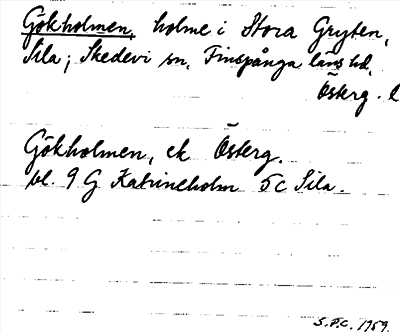 Gökholmen, holme i Stora Gryten,
Sila; Skedevi sn, Finspånga läns hd,
Österg. l
Gökholmen, ek Österg.
bl. 9 G Katrineholm 5c Sila.
S.F.C. 1959.